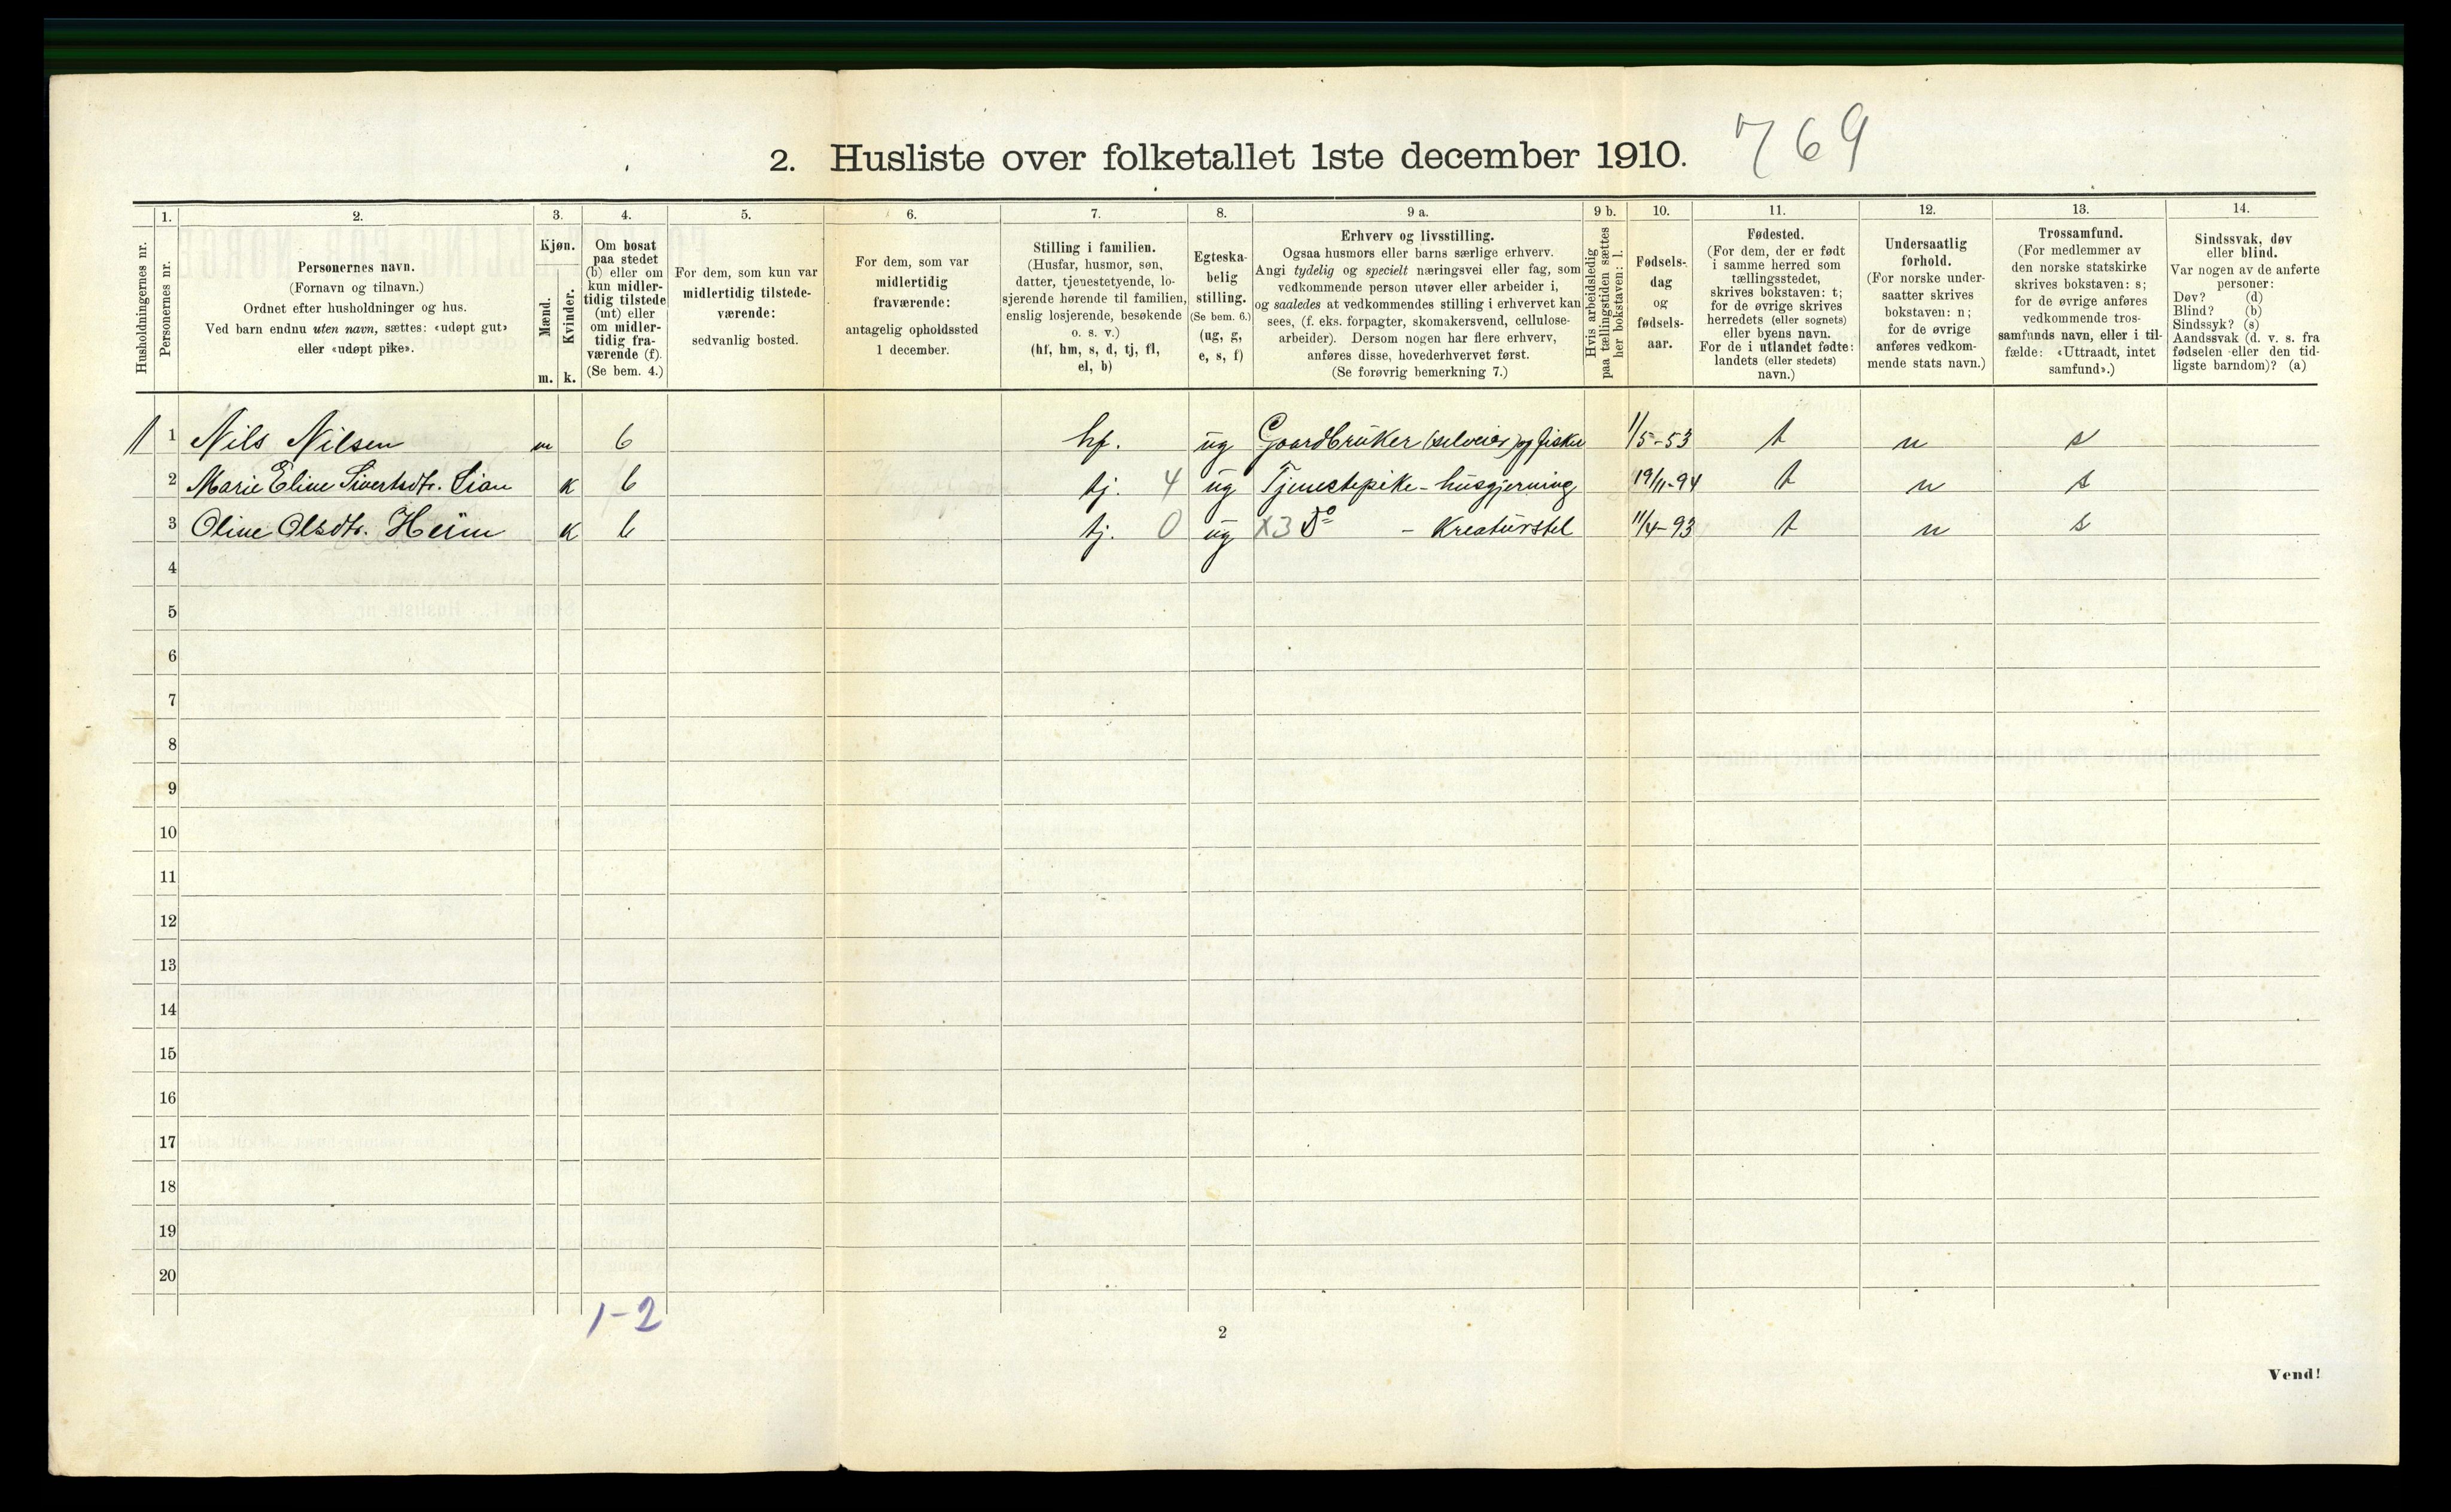 2. Husliste over folketallet 1ste december 1910. 769
Husholdningernes nr.
1. Personernes nr.
2. Personernes navn.
(Fornavn og tilnavn.)
Ordnet efter husholdninger og hus.
Ved barn endnu uten navn, sættes: «udøpt gut»
eller «udøpt pike».
3. Kjøn.
Mænd. m.
Kvinder. k.
4. Om bosat
paa stedet
(b) eller om
kun midler-
tidig tilstede
(mt) eller
om midler-
tidig fra-
værende (f).
(Se bem. 4.)
5. For dem, som kun var
midlertidig tilstede-
værende:
sedvanlig bosted.
6. For dem, som var
midlertidig
fraværende:
antagelig opholdssted
1 december.
7. Stilling i familien.
(Husfar, husmor, søn,
datter, tjenestetyende, lo-
sjerende hørende til familien,
enslig losjerende, besøkende
o. s. v.)
(hf, hm, s, d, tj, fl,
el, b)
8. Egteska-
belig
stilling.
(Se bem. 6.)
(ug, g,
e, s, f)
9 a. Erhverv og livsstilling.
Ogsaa husmors eller barns særlige erhverv.
Angi tydelig og specielt næringsvei eller fag, som
vedkommende person utøver eller arbeider i,
og saaledes at vedkommendes stilling i erhvervet kan
sees, (f. eks. forpagter, skomakersvend, cellulose-
arbeider). Dersom nogen har flere erhverv,
anføres disse, hovederhvervet først.
(Se forøvrig bemerkning 7.)
9 b. Hvis arbeidsledig
paa tællingstiden sættes
her bokstaven: l.
10. Fødsels-
dag
og
fødsels-
aar.
11. Fødested.
(For dem, der er født
i samme herred som
tællingsstedet,
skrives bokstaven: t;
for de øvrige skrives
herredets (eller sognets)
eller byens navn.
For de i utlandet fødte:
landets (eller stedets)
navn.)
12. Undersaatlig
forhold.
(For norske under-
saatter skrives
bokstaven: n;
for de øvrige
anføres vedkom-
mende stats navn.)
13. Trossamfund.
(For medlemmer av
den norske statskirke
skrives bokstaven: s;
for de øvrige anføres
vedkommende tros-
samfunds navn, eller i til-
fælde: «Uttraadt, intet
samfund».)
14. Sindssvak, døv
eller blind.
Var nogen av de anførte
personer:
Døv? (d)
Blind? (b)
Sindssyk? (s)
Aandssvak (d. v. s. fra
fødselen eller den tid-
ligste barndom)? (a)
1 1 Nils Nilsen m b hf. ug Gaardbruker (selveier) og fisker 1/5-53 t n s
2 Marie Eline Sivertsdtr. Lian k b tj. 4 ug Tjenestepike - husgjerning 19/11-94 t n s
3 Oline Olsdtr. Heim k b tj. 0 ug X3 Do - Kreaturstel 11/4-93 t n s
4
5
6
7
8
9
10
11
12
13
14
15
16
17
18
19
20
1-2
2
Vend!